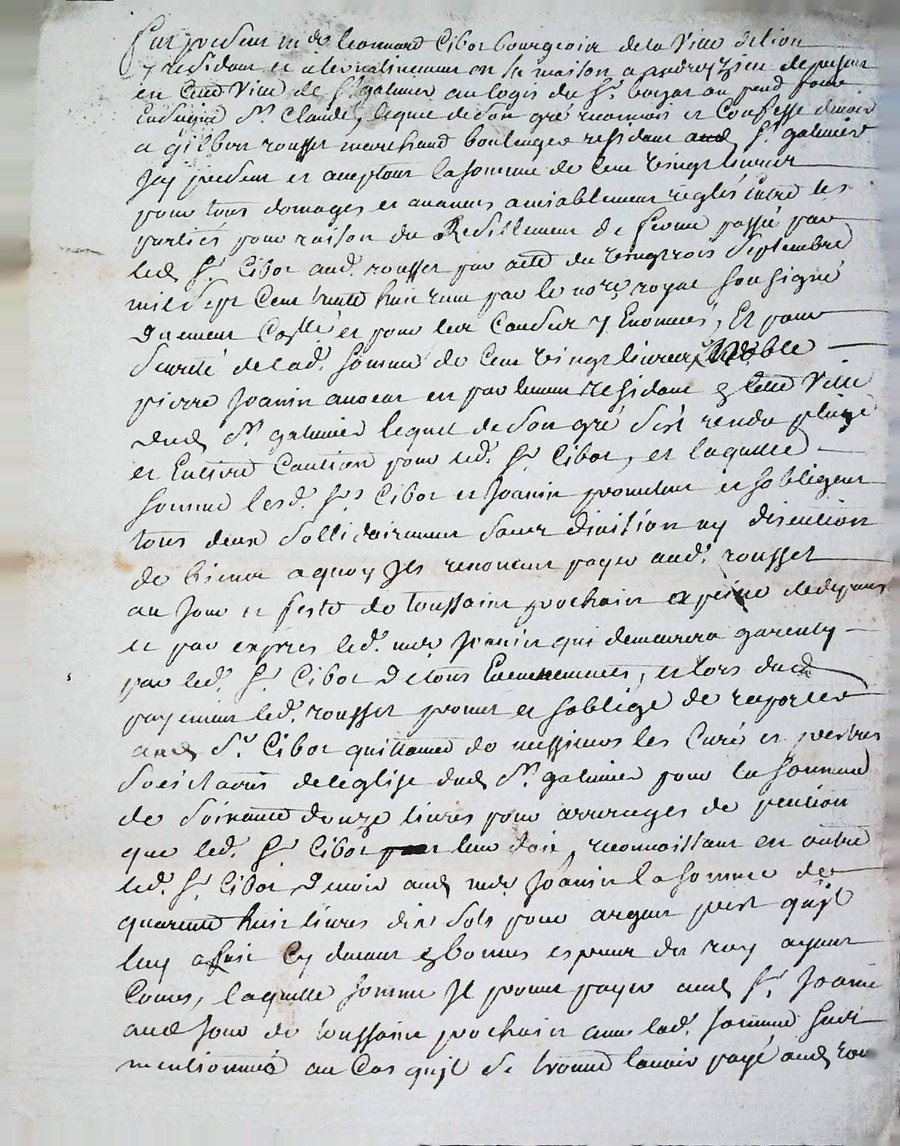 fut present m.re leonnard Cibot bourgeois de la Ville de lion
y residant et alternativement en sa maison a andrezieu de present
en cette Ville de S.t galmier au logis du S.r ou pend pour
Enseigne S.t Claude, lequel de son gré reconnois et Confesse devoir
a gilbert rousset marchand boulenger residant aud S.t galmier
Jcy present et aceptant la somme de Cent vingt livres
pour tous domages et amiablement reglés Entre les
parties pour raison du Resiliement de ferme passé par
led S.r Cibot aud. rousset par acte du vingt trois Septembre
mil sept Cent trente huit reçu par le not.re royal soussigné
Duement Coñllé et pour les Causes y Enoncées, Et pour
Seureté de la d. somme de Cent vingt livres, Noble
pierre Joanin avocat en parlement residant En Cette Ville
dud S.t galmier lequel de son gré s'est rendu pleige
et Entiere Caution pour led. S.r Cibot, et laquelle
somme lesd. S.rs Cibot et Joanin promettent et s'obligent
tous deux sollidairement sans division ny discution
de biens a quoy Jls renoncent payer aud. rousset
au Jour et feste de toussaint prochain a peine de depens
et par expres led. m.re Joanin qui demeurera garenty
par led. S.r Cibot De tous Evenements, et lors dud
payement led. rousset promet et s'oblige de raporter
aud S.r Cibot quittance de messieurs les Curé et prestres
Societaires de leglise dud S.t galmier pour la somme
de soixante douze livres pour arrerages de pention
que led. S.r Cibot leur doit, reconnoissant en outre
led. S.r Cibot Devoir aud m.re Joanin la somme de
quarente huit livres dix sols pour argent prest qu'jl
luy a fait Cy devant En bonnes especes du roy ayant
Cours, laquelle somme Jl promet payer aud S.r Joanin
aud Jour de toussaint prochain avec lad. somme susd
mentionnée au Cas qu'jl se trouve l'avoir payé aud rou